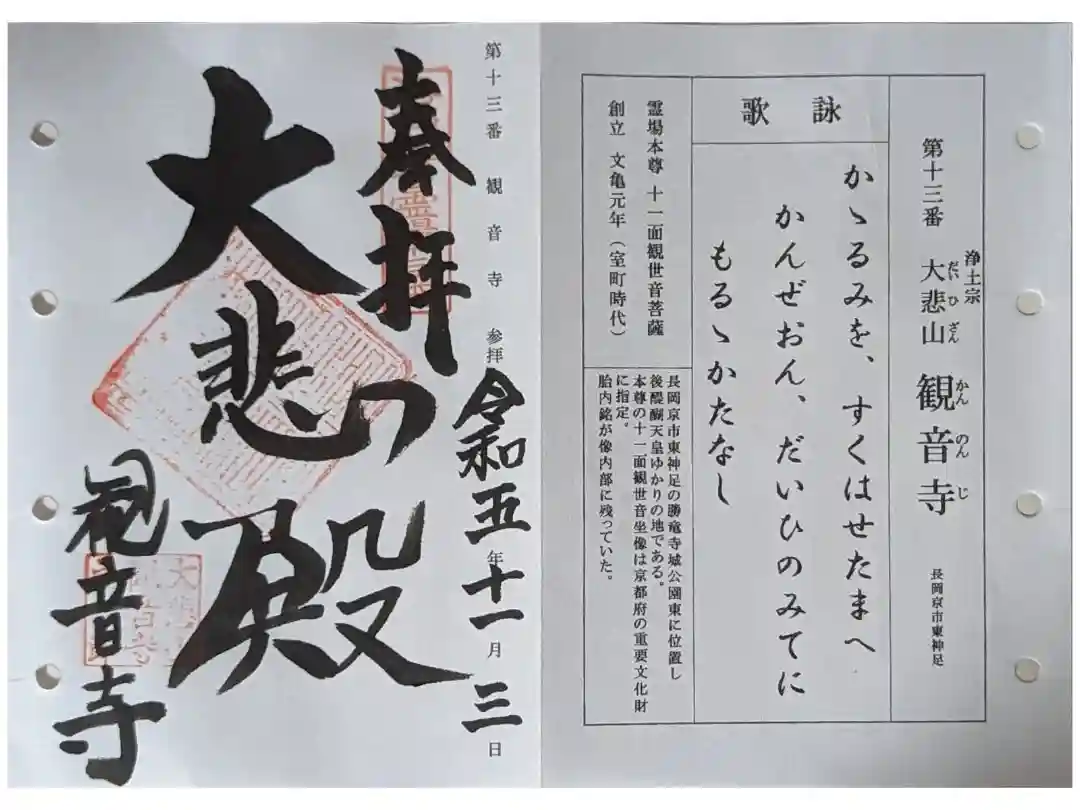 第十三番
浄土宗
大悲山 観音寺
だいひざん かんのんじ
長岡京市東神足
詠歌
かゝるみを、すくはせたまへ
かんぜおん、だいひのみてに
もるゝかたなし
霊場本尊 十一面観世音菩薩
創立 文亀元年(室町時代)
長岡京市東神足の勝竜寺城公園東に位置し
後醍醐天皇ゆかりの地である。
本尊の十一面観世音坐像は京都府の重要文化財
に指定。
胎内銘が像内部に残っていた。
第十三番 観音寺 参拝 令和五年十一月三日
奉拝
大悲殿
観音寺